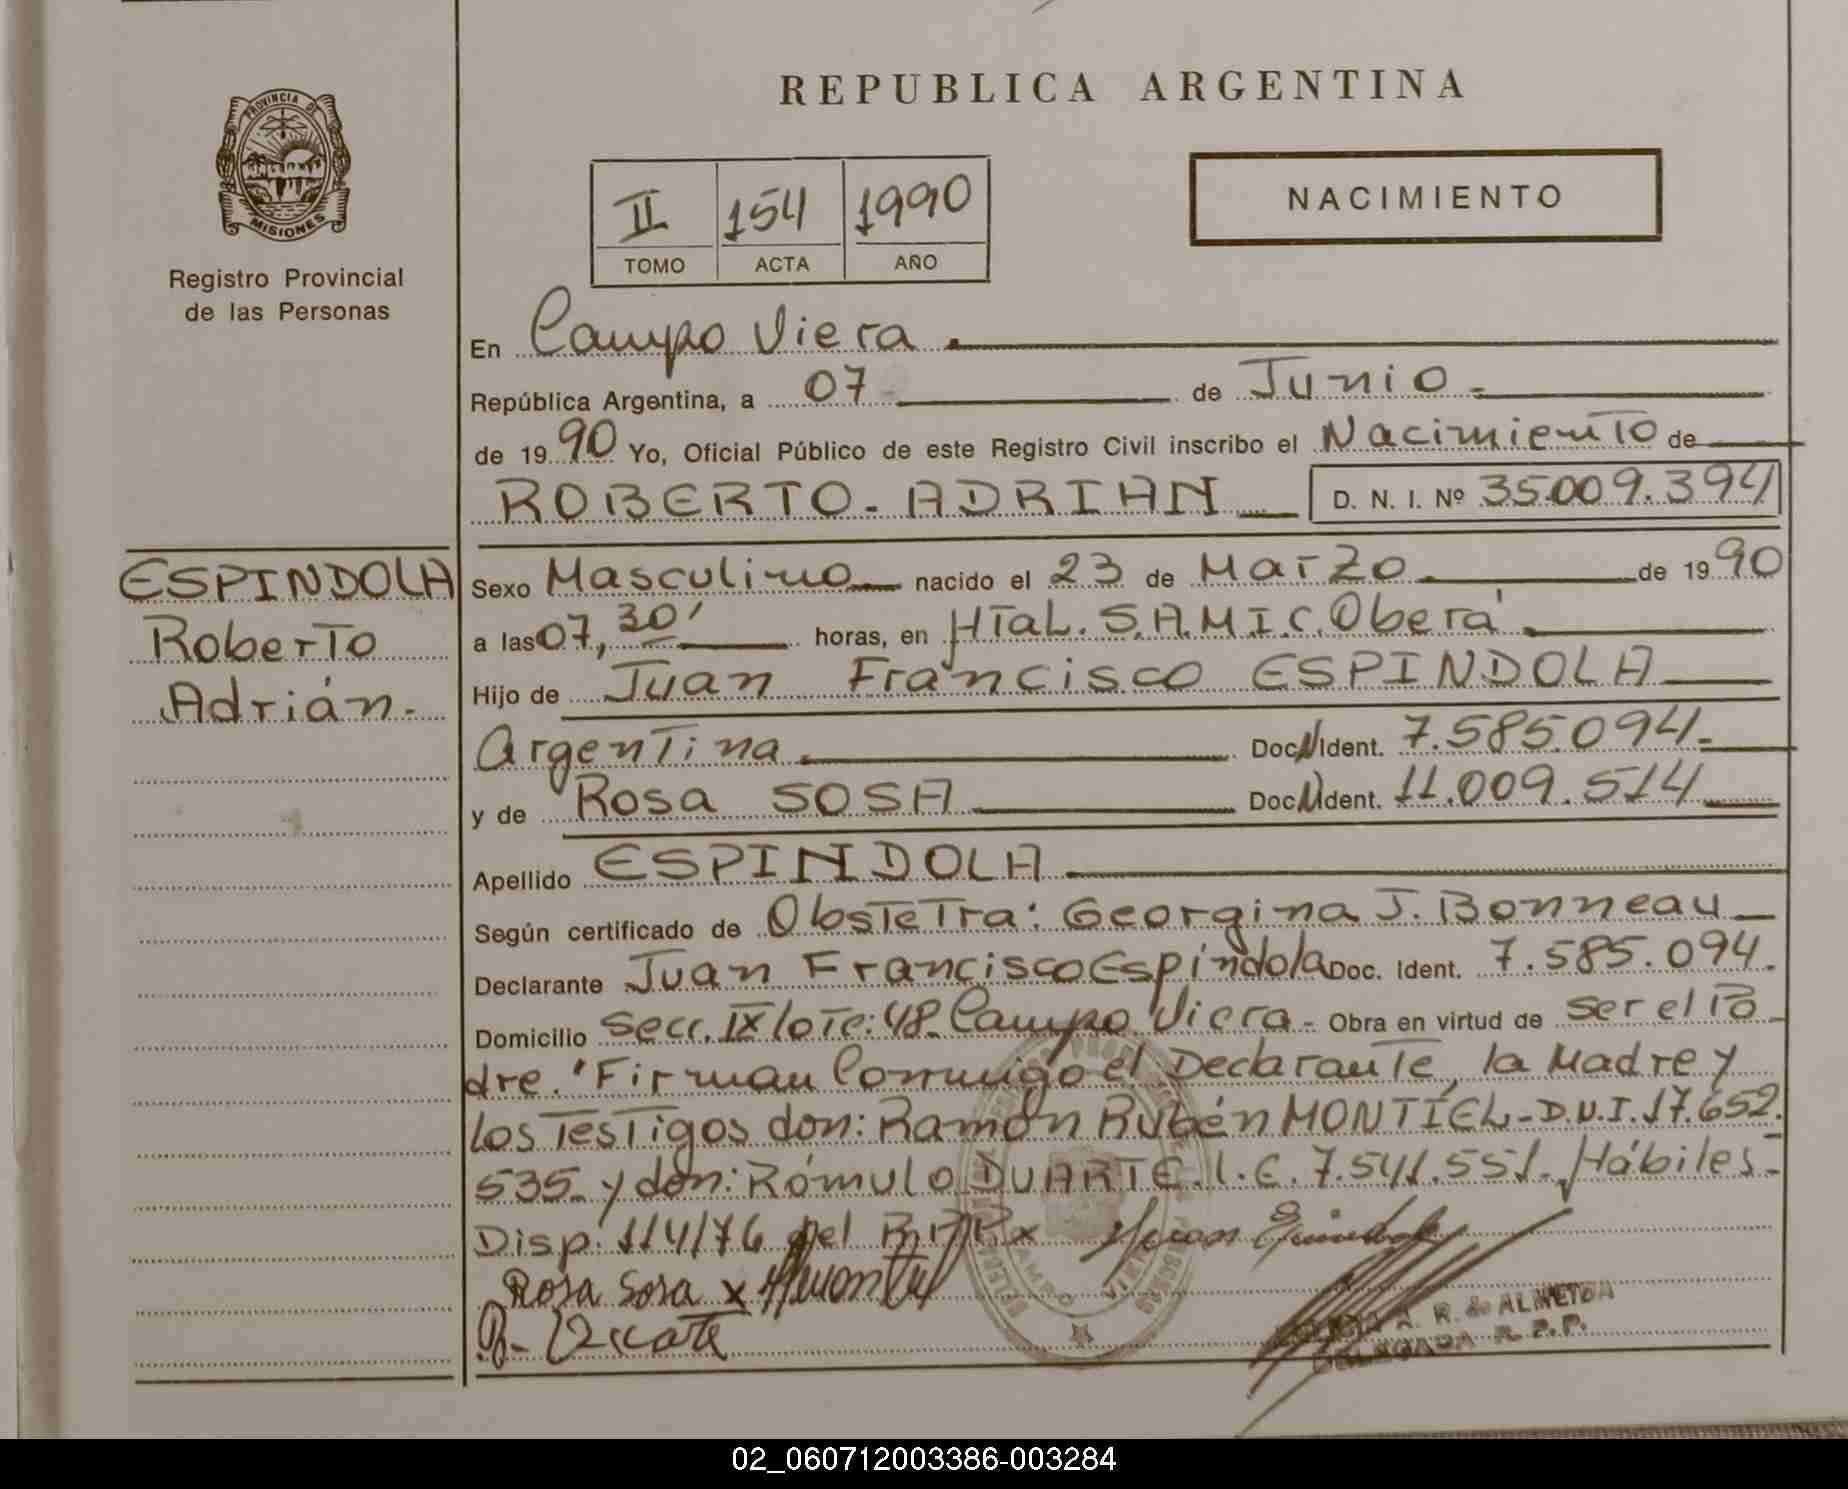 PROVINCIA DE
MISIONES
Registro Provincial
de las Personas
ESPINDOLA
Roberto
Adrián.-
REPUBLICA ARGENTINA
II 154 1990
TOMO ACTA AÑO
NACIMIENTO
En Campo Viera
República Argentina, a 07 de Junio
de 1990 Yo, Oficial Público de este Registro Civil inscribo el Nacimiento de
ROBERTO - ADRIAN D. N. I. Nº 35.009.394
Sexo Masculino nacido el 23 de Marzo de 1990
a las 07,30' horas, en HTaL. S.A.M.I.C. Oberá
Hijo de Juan Francisco ESPINDOLA
Argentina Doc N Ident. 7.585.094.-
y de Rosa SOSA Doc N Ident. 11.009.514
Apellido ESPINDOLA
Según certificado de Obstetra: Georgina J. Bonneau
Declarante Juan Francisco Espíndola Doc. Ident. 7.585.094.
Domicilio Secc. IX lote: 48- Campo Viera - Obra en virtud de ser el Pa
dre. "Firman Conmigo el Declarante, la Madre y
los Testigos don: Ramón Rubén MONTIEL - D.N.I. 17.652.
535- y don: Rómulo DUARTE. L.E. 7.541.551. Hábiles-
Disp. 114/76 del R.P.P. x Juan Espindola
Rosa Sosa x
A. R. de ALMEIDA
DELEGADA R. P. P.
02_060712003386-003284